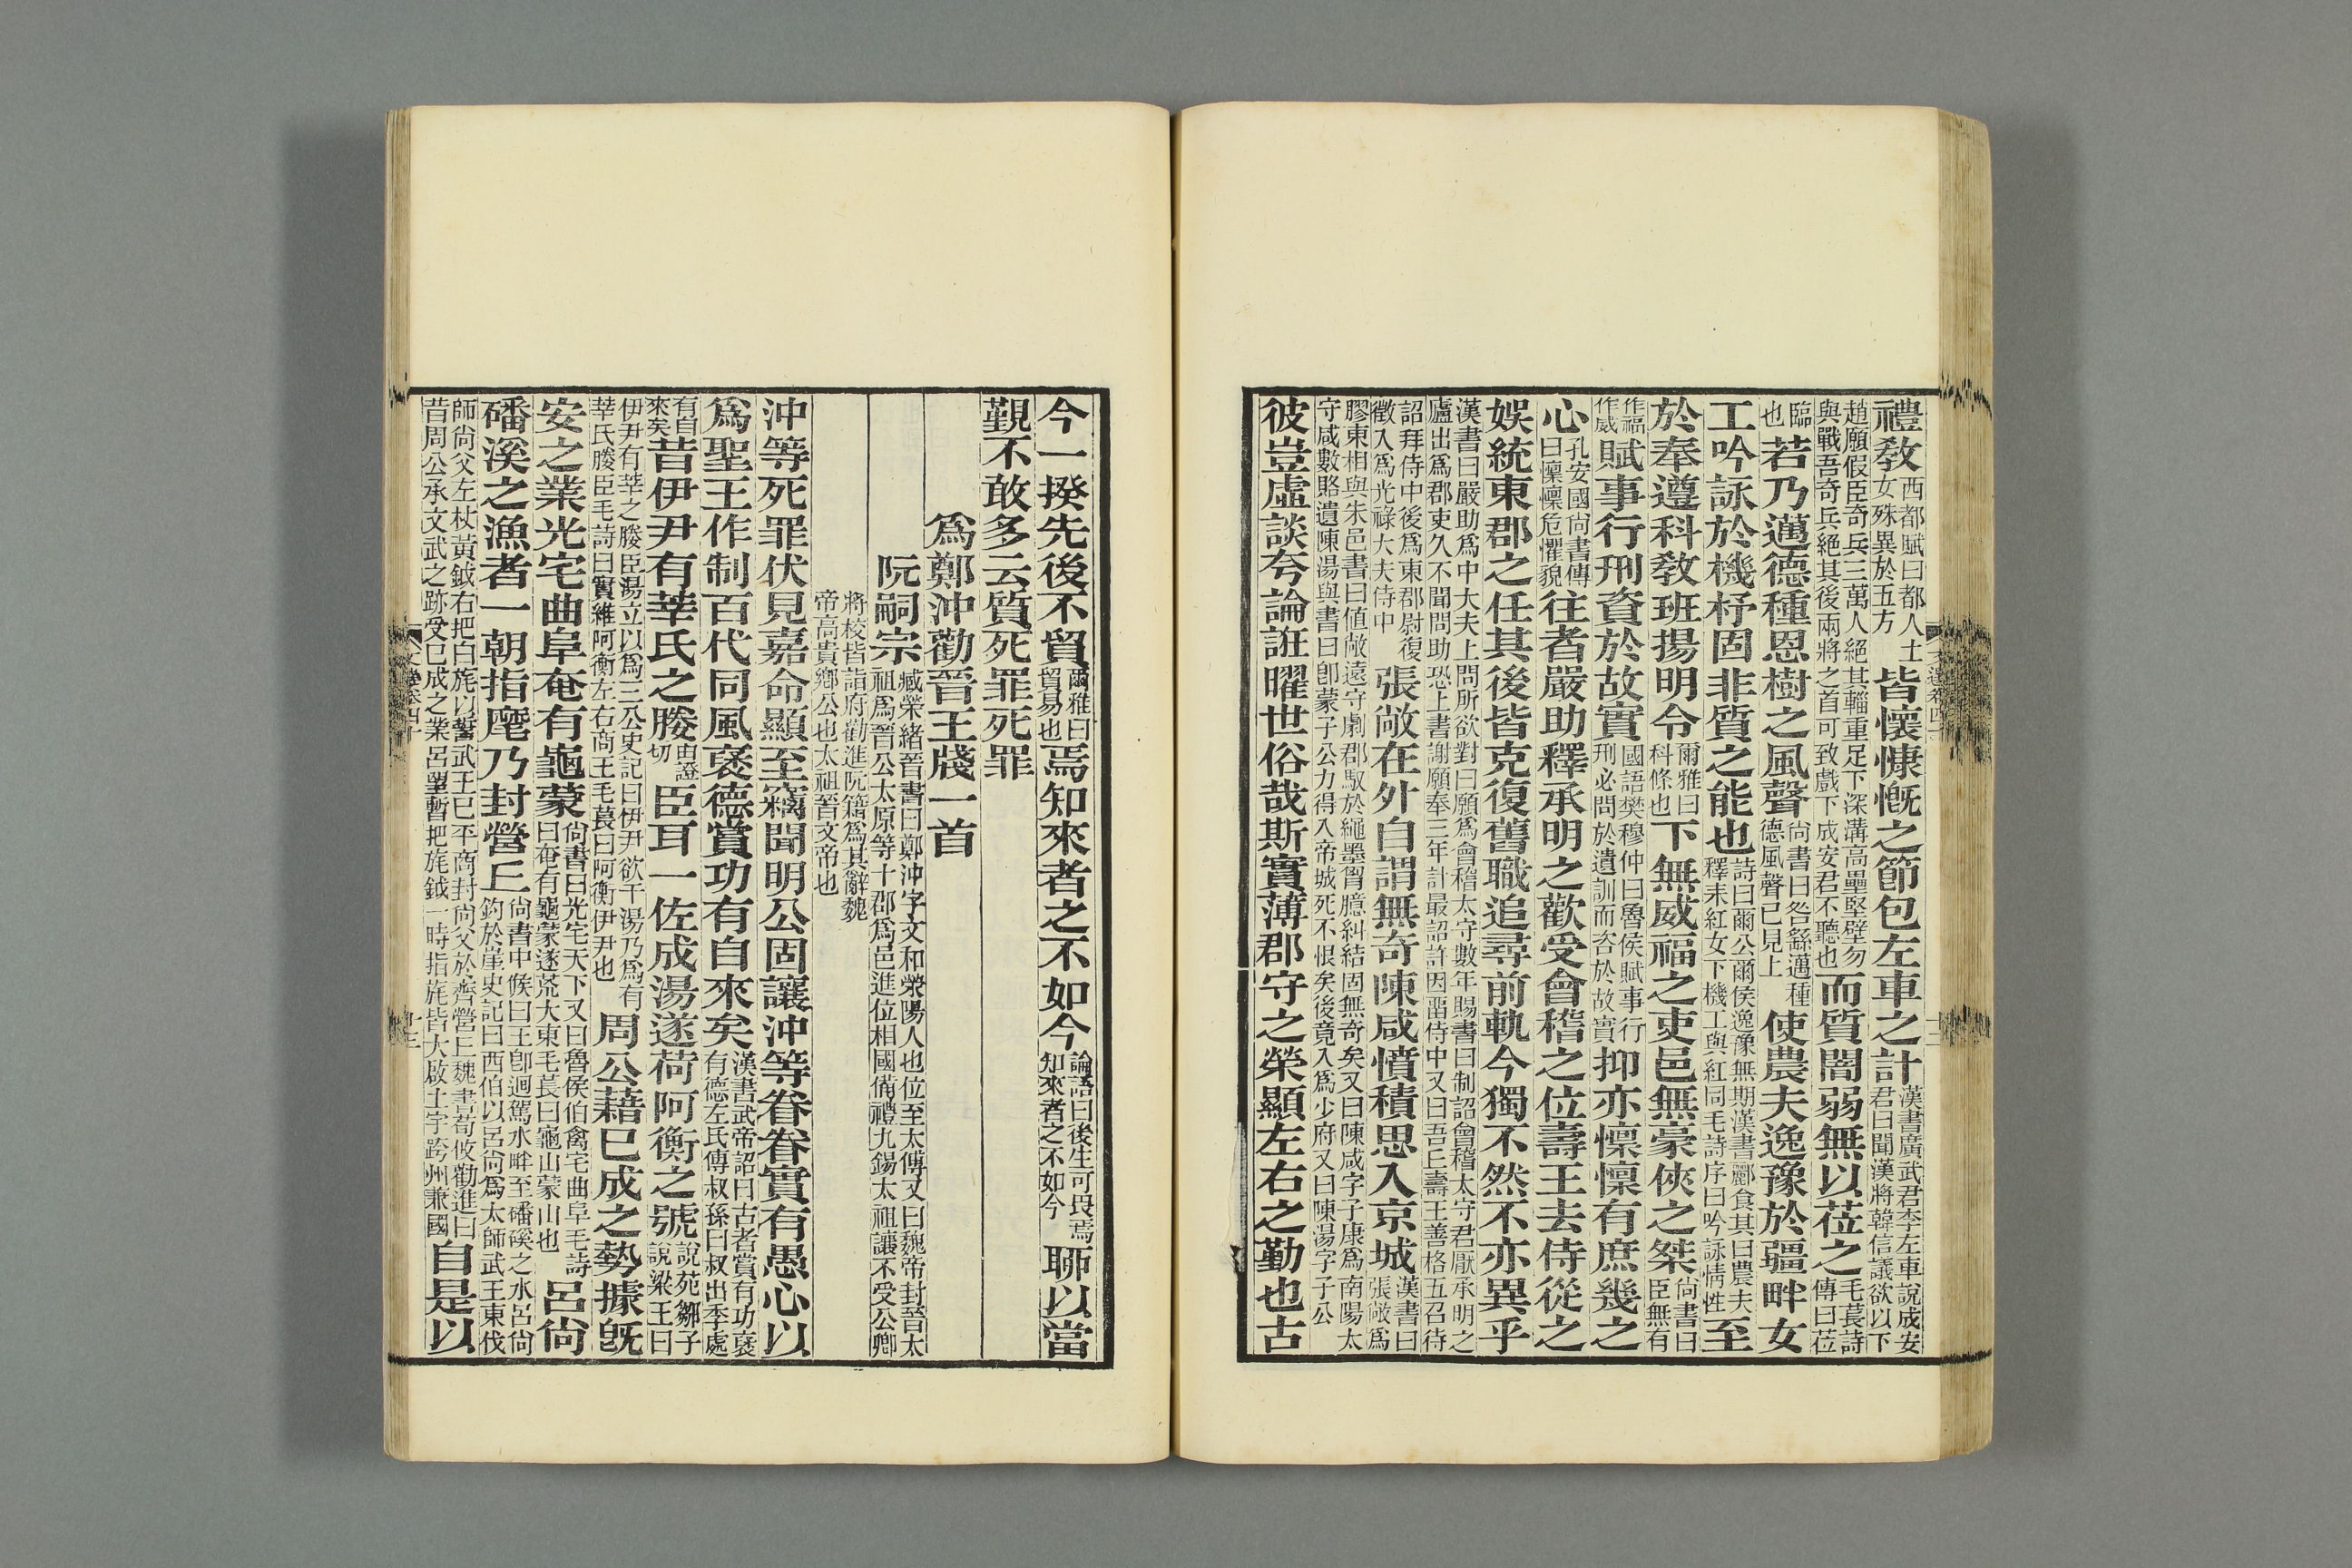 禮教西都賦曰都人士女殊異於五方皆懷慷慨之節包左車之計漢書廣武君李左車說成安君曰聞漢將韓信議欲以下
趙願假臣奇兵三萬人絕其輜重足下深溝高壘堅壁勿與戰吾奇兵絕其後兩將之首可致戲下成安君不聽也而質闇弱無以莅之毛萇詩傳曰莅
臨也若乃邁德種恩樹之風聲尚書曰咎繇邁種德風聲已見上使農夫逸豫於疆畔女
工吟詠於機杼固非質之能也詩曰爾公爾侯逸豫無期漢書酈食其曰農夫釋耒紅女下機工與紅同毛詩序曰吟詠情性至
於奉遵科教班揚明令爾雅曰科條也下無威福之吏邑無豪俠之桀尚書曰臣無有
作福作威賦事行刑資於故實國語樊穆仲曰魯侯賦事行刑必問於遺訓而咨於故實抑亦懍懍有庶幾之
心孔安國尚書傳曰懍懍危懼貌往者嚴助釋承明之歡受會稽之位壽王去侍從之
娛統東郡之任其後皆克復舊職追尋前軌今獨不然不亦異乎
漢書曰嚴助爲中大夫上問所欲對曰願爲會稽太守數年賜書曰制詔會稽太守君厭承明之廬出爲郡吏久不聞問助恐上書謝願奉三年計最詔許因畱侍中又曰吾丘壽王善格五召待
詔拜侍中後爲東郡尉復徵入爲光祿大夫侍中張敞在外自謂無奇陳咸憤積思入京城漢書曰張敞爲
膠東相與朱邑書曰値敞遠守劇郡馭於繩墨胷臆糾結固無奇矣又曰陳咸字子康爲南陽太守咸數賂遺陳湯與書曰卽蒙子公力得入帝城死不恨矣後竟入爲少府又曰陳湯字子公
彼豈虛談夸論誑曜世俗哉斯實薄郡守之榮顯左右之勤也古
今一揆先後不貿爾雅曰貿易也焉知來者之不如今論語曰後生可畏焉知來者之不如今聊以當
覲不敢多云質死罪死罪
爲鄭沖勸晉王牋一首
阮嗣宗臧榮緒晉書曰鄭沖字文和滎陽人也位至太傅又曰魏帝封晉太祖爲晉公太原等十郡爲邑進位相國備禮九錫太祖讓不受公卿
將校皆詣府勸進阮籍爲其辭魏帝高貴鄉公也太祖晉文帝也
沖等死罪伏見嘉命顯至竊聞明公固讓沖等眷眷實有愚心以
爲聖王作制百代同風褒德賞功有自來矣漢書武帝詔曰古者賞有功褒有德左氏傳叔孫曰叔出季處
有自來矣昔伊尹有莘氏之媵臣耳一佐成湯遂荷阿衡之號說苑鄒子說梁王曰
伊尹有莘之媵臣湯立以爲三公史記曰伊尹欲干湯乃爲有莘氏媵臣毛詩曰實維阿衡左右商王毛萇曰阿衡伊尹也周公藉已成之勢據旣
安之業光宅曲阜奄有龜蒙尚書曰光宅天下又曰魯侯伯禽宅曲阜毛詩曰奄有龜蒙遂荒大東毛萇曰龜山蒙山也呂尚
磻溪之漁者一朝指麾乃封營丘尚書中候曰王卽迴駕水畔至磻磎之水呂尚釣於崖史記曰西伯以呂尚爲太師武王東伐
師尚父左杖黃鉞右把白旄以誓武王已平商封尚父於齊營丘魏書荀攸勸進曰昔周公承文武之跡受已成之業呂望暫把旄鉞一時指旄皆大啟土宇跨州兼國自是以